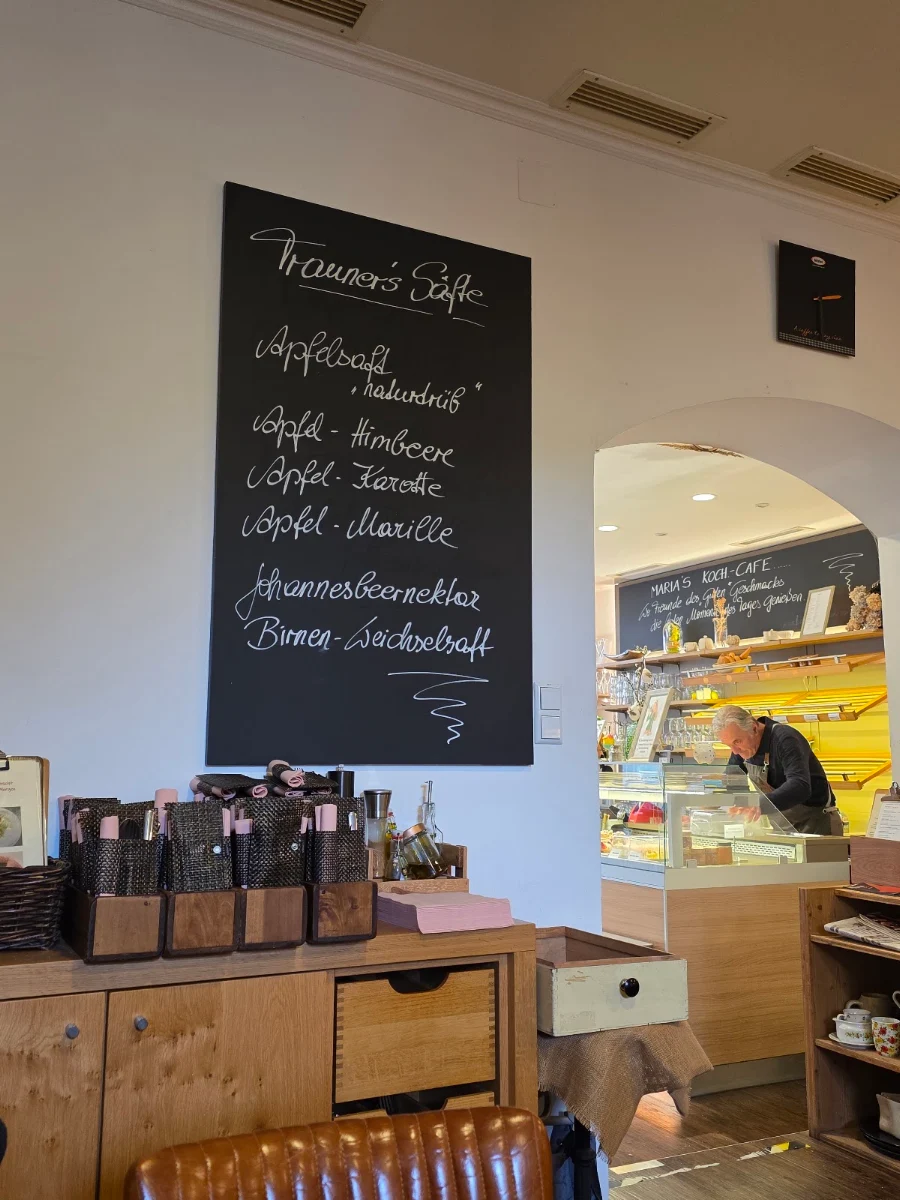 Trauner's Säfte
Apfelsaft
"naturtrüb"
Apfel - Himbeere
Apfel - Karotte
Apfel - Marille
Johannesbeernektar
Birnen-Weichselsaft
MARIA'S KOCH-CAFE....
Für Freunde des guten Geschmacks
die guten Momente des Tages genießen